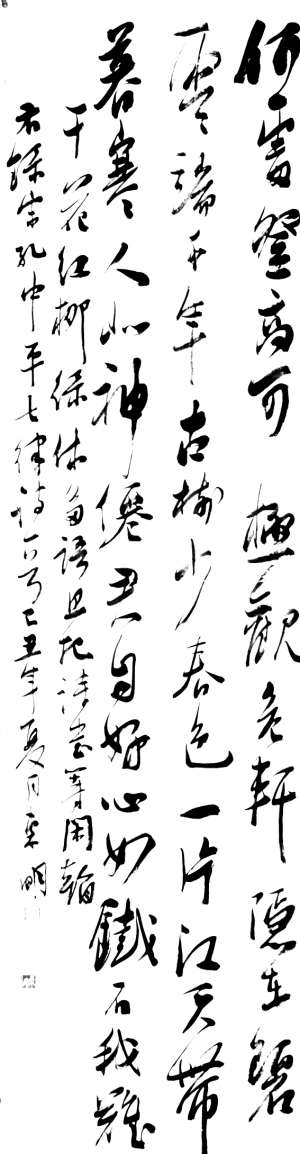 何需登高可極觀危軒隱在碧
雲端千年古樹少春色一片江天帶
暮寒人似神僊君自好心如鐵石我難
干花紅柳綠休多語且把詩等閑翰
右錄宋孔中平七律詩一首己丑年夏月明